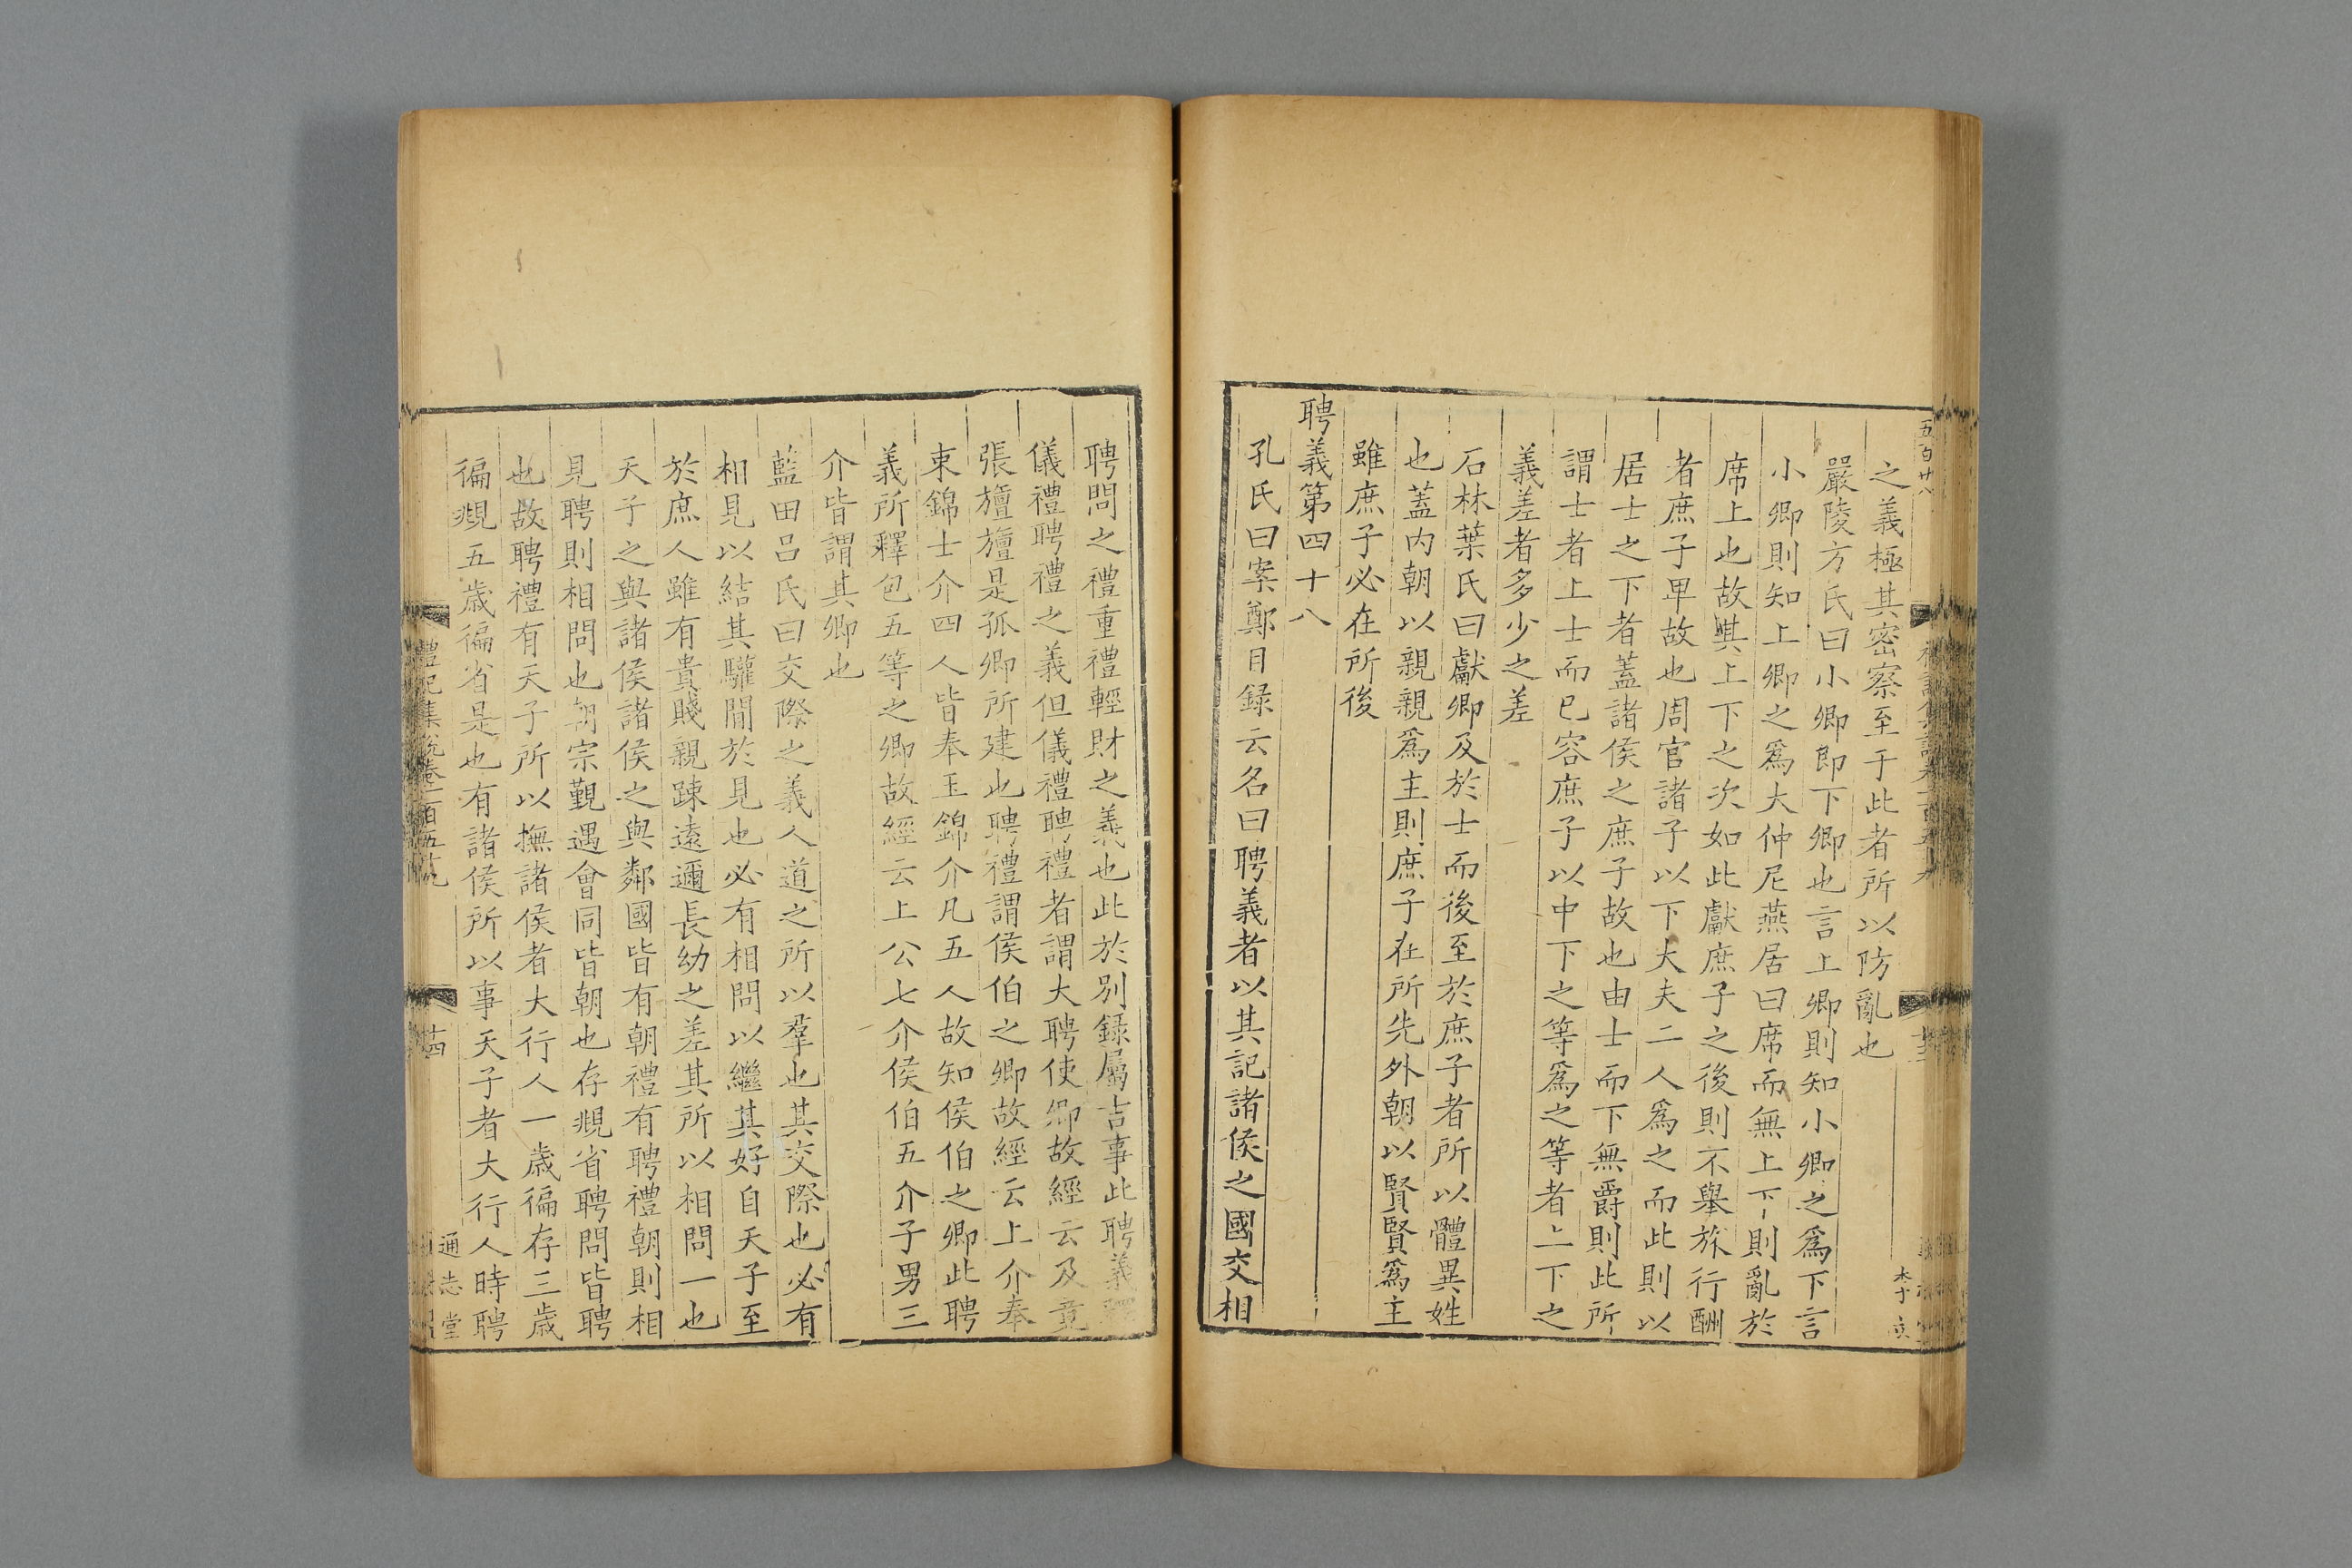 五百廿八
之義極其密察至于此者所以防亂也
嚴陵方氏曰小卿即下卿也言上卿則知小卿之爲下言
小卿則知上卿之爲大仲尼燕居曰席而無上下則亂於
席上也故其上下之次如此獻庶子之後則不舉旅行酬
者庶子卑故也周官諸子以下大夫二人爲之而此則以
居士之下者蓋諸侯之庶子故也由士而下無爵則此所
謂士者上士而已容庶子以中下之等爲之等者上下之
義差者多少之差
石林葉氏曰獻卿及於士而後至於庶子者所以體異姓
也蓋内朝以親親爲主則庶子在所先外朝以賢賢爲主
雖庶子必在所後
聘義第四十八
孔氏曰案鄭目録云名曰聘義者以其記諸侯之國交相
聘問之禮重禮輕財之義也此於别録屬吉事此聘義釋
儀禮聘禮之義但儀禮聘禮者謂大聘使卿故經云及竟
張旜旜是孤卿所建也聘禮謂侯伯之卿故經云上介奉
束錦士介四人皆奉玉錦介凡五人故知侯伯之卿此聘
義所釋包五等之卿故經云上公七介侯伯五介子男三
介皆謂其卿也
藍田吕氏曰交際之義人道之所以羣也其交際也必有
相見以結其驩閒於見也必有相問以繼其好自天子至
於庶人雖有貴賤親踈遠邇長幼之差其所以相問一也
天子之與諸侯諸侯之與鄰國皆有朝禮有聘禮朝則相
見聘則相問也朝宗覲遇會同皆朝也存覜省聘問皆聘
也故聘禮有天子所以撫諸侯者大行人一歲徧存三歲
徧覜五歲徧省是也有諸侯所以事天子者大行人時聘
禮記集說卷一百五十九
十四
通志堂